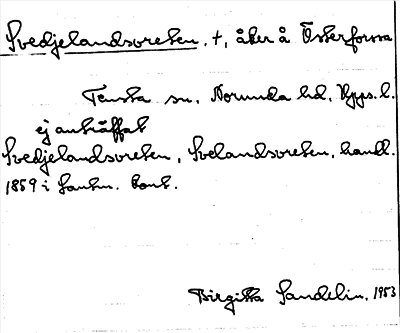 Svedjelandsvreten, †, åker å Österforssa
Tensta sn, Norunda hd, Upps. l.
ej anträffat
Svedjelandsvreten, Svelandsvreten, handl.
1859 i Lantm. kont.
Birgitta Sandelin, 1953